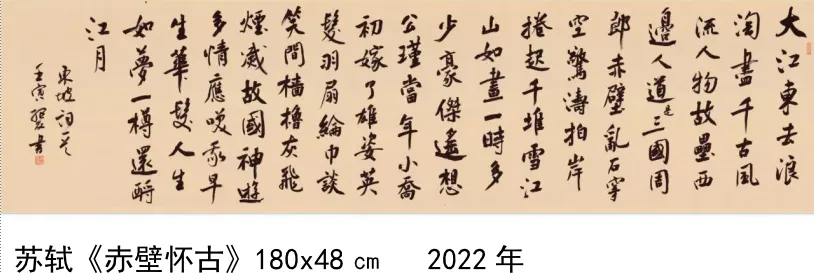 大江東去浪
淘盡千古風
流人物故壘西
邊人道是三國周
郎赤壁亂石穿
空驚濤拍岸
捲起千堆雪江
山如畫一時多
少豪傑遙想
公瑾當年小喬
初嫁了雄姿英
髮羽扇綸巾談
笑間檣櫓灰飛
煙滅故國神遊
多情應咲我早
生華髮人生
如夢一樽還酹
江月
東坡詞一首
壬寅書
苏轼《赤壁怀古》180x48 cm 2022 年